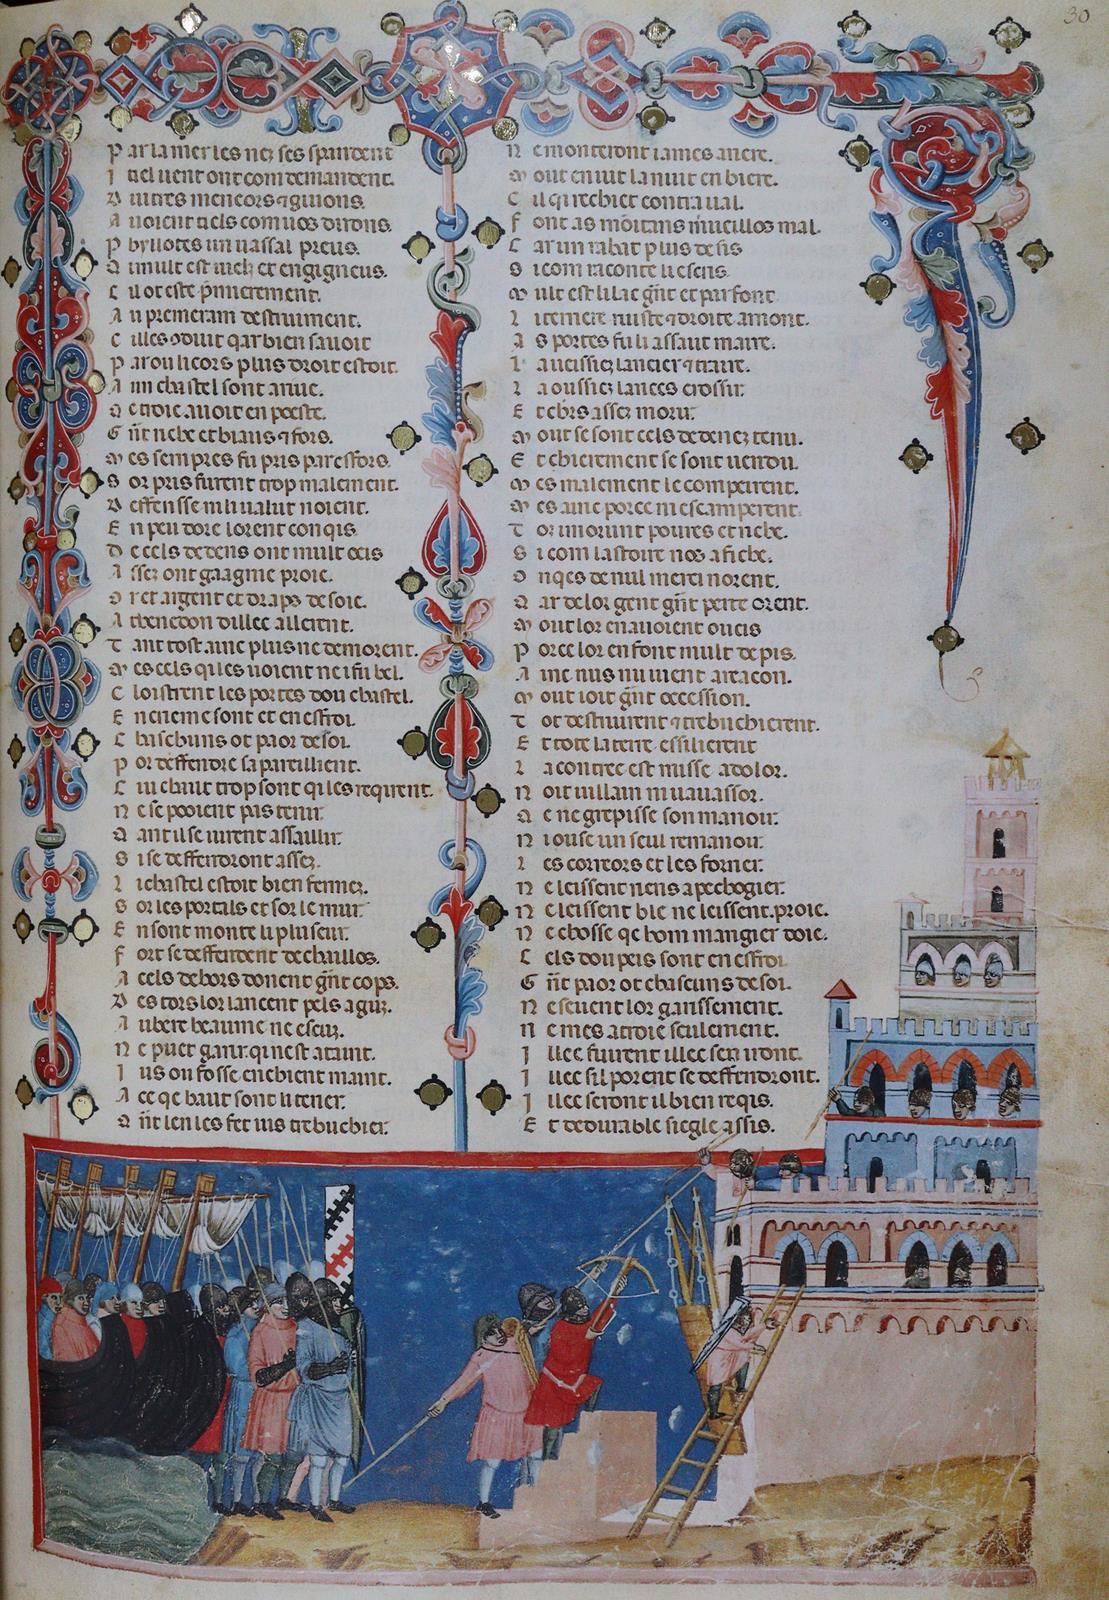 30
P ar la mer les nez ses spandent
I ciel uent ont com demandent
A uoient tiels com uos dirons.
P hyllotes un uassal preus.
Q i mult est uielz et engigneus.
C il ot esté primierement.
A u premeram destruiment.
C il les 9duit qar bien sauoit
P ar ou li cors plus droit estoit.
A un chastel sont ariue.
Q e troie auoit en poeste.
G rant riche et biaus 7 fors.
M es sempres fu pris par esfors.
S orpris furent trop malement.
D effensse ni li ualut noient.
E n peu dore lorent conqis
D e cels dedens ont mult ocis
A ssez ont gaagnie proie.
O r et argent et draps de soie.
A thenedon dillec allerent.
T ant tost ainc plus ne demorent.
M es cels qi les uoient ne ifu bel.
C loistrent les portes dou chastel.
E n creme sont et en esfroi.
C haschuns ot paor de soi.
P or deffendre sapareillient.
C ui chaut trop sont qi les reqirent.
N e se pooient pas tenir
Q ant il se uirent assaillir.
S i se deffendront assez.
L i chastel estoit bien fermez.
S or les portals et sor le mur.
E n sont monte li pluseur.
F ort se deffendent de chaillos.
A cels dehors donent grant cops.
D es tors lor lancent pels aguz.
A ubers heaume ne escuz.
N e puet garir qi nest ataint.
I us ou fosse en chient maint.
A ce qe haut sont li terier.
Q ant len les fet ius trebuchier.
N e monteront iames arere.
M out en iut la nuit en biere.
C il qi rechiet contraual.
F ont as montans merueillos mal.
C ar un rabat plus de sis
S i com raconte li escris
M ult est li lac grant et parfont
L i terrere ruiste 7 droite amont.
A s portes fu li assaut maire.
L a ueissiez lancier 7 traire.
L a oissiez lances croissir.
E t chrs assez morir.
M out se sont cels dedenz tenu.
E t chierement se sont uendu.
M es malement le comperent.
M es ainc por ce ni escamperent.
T or i morurent poures et riche.
S i com lastoire nos afiche.
O nqes de nul merci norent.
Q ar de lor gent grant perte orent.
M out lor en auoient oucis
P or ce lor en font mult de pis.
A me nus nu uient a reacon.
M out i oit grant occession.
T ot destruirent 7 trebuchierent.
E t tote la terre essilierent
L a contree est misse a dolor.
N oit uillain ni uauassor.
Q e ne grepisse son manoir.
N i ouse un seul remanoir.
L es correors et les forrier.
N e leissent riens a pechogier.
N e leissent ble ne leissent proie.
N e chosse qe hom mangier doie.
C els dou peis sont en esfroi
G rant paor ot chascuns de soi.
N e seuent lor garissement.
N e mes a troie seulement.
I llec fuirent illec sen uont.
I llec sil porent se deffendront.
I llec seront il bien reqis.
E t de durable siegle assis.